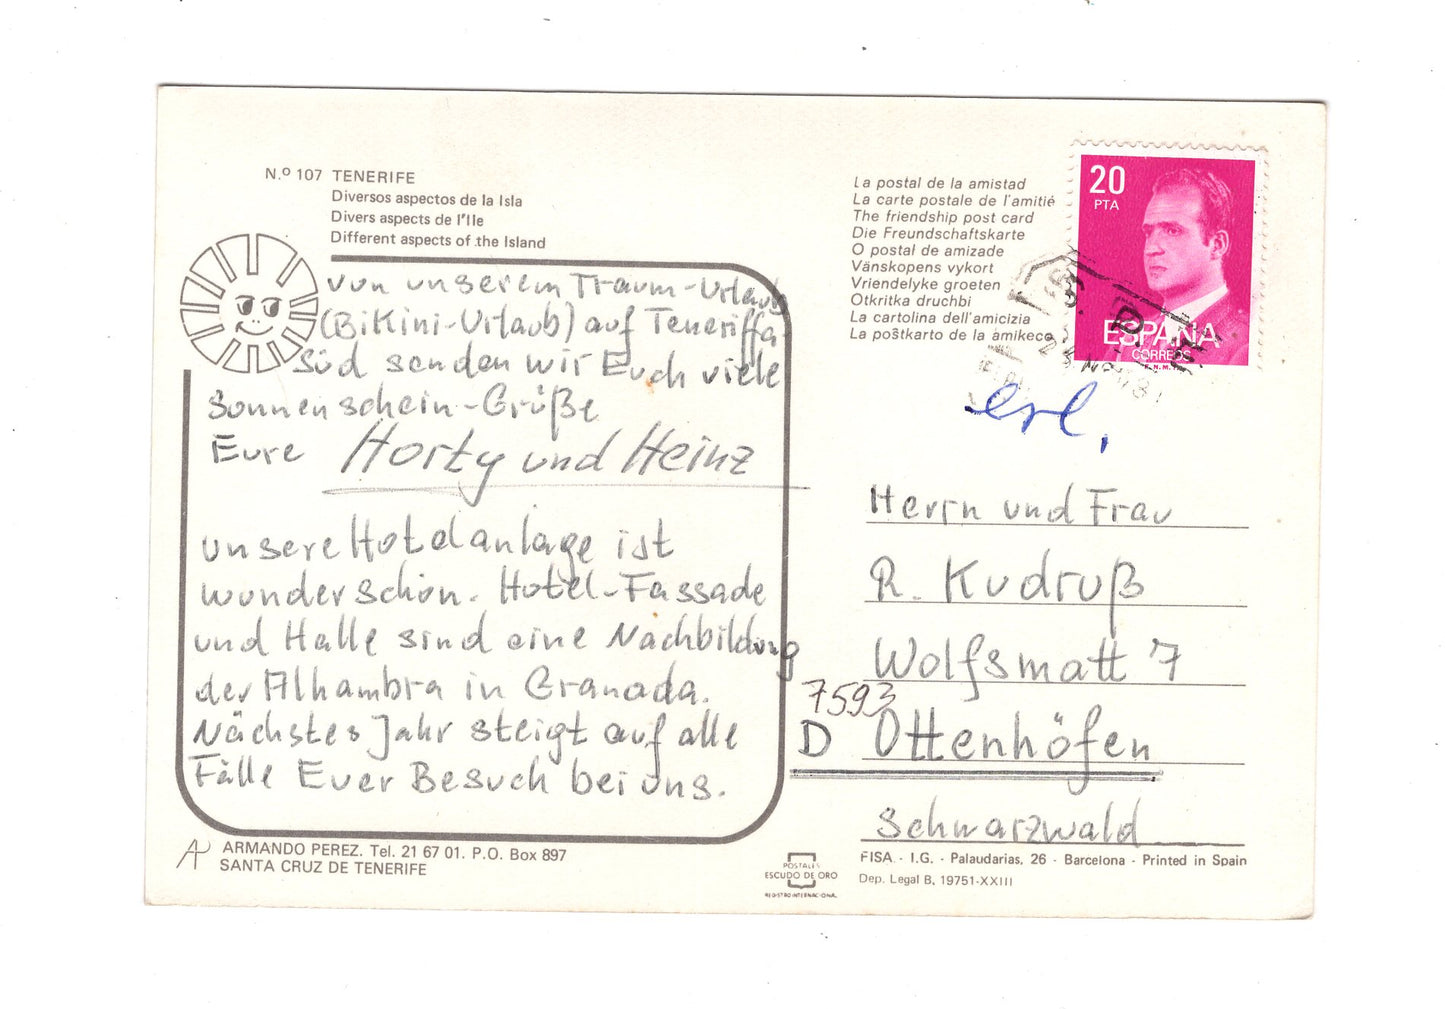 N.º 107 TENERIFE
Diversos aspectos de la Isla
Divers aspects de l'Ile
Different aspects of the Island
von unserem Traum-Urlaub
(Bikini-Urlaub) auf Teneriffa-
Süd senden wir Euch viele
Sonnenschein-Grüße
Eure Horty und Heinz
unsere Hotelanlage ist
wunderschön. Hotel-Fassade
und Halle sind eine Nachbildung
der Alhambra in Granada.
Nächstes Jahr steigt auf alle
Fälle Euer Besuch bei uns.
ARMANDO PEREZ. Tel. 21 67 01. P.O. Box 897
SANTA CRUZ DE TENERIFE
POSTALES
ESCUDO DE ORO
REGISTRO INTERNACIONAL
La postal de la amistad
La carte postale de l'amitié
The friendship post card
Die Freundschaftskarte
O postal de amizade
Vänskopens vykort
Vriendelyke groeten
Otkritka druchbi
La cartolina dell'amicizia
La poŝtkarto de la amikeco
20
PTA
ESPAÑA
CORREOS
F.N.M.T.
erl.
Herrn und Frau
R. Kudruß
Wolfsmatt 7
7593
D Ottenhöfen
Schwarzwald
FISA - I.G. - Palaudarias, 26 - Barcelona - Printed in Spain
Dep. Legal B. 19751-XXIII